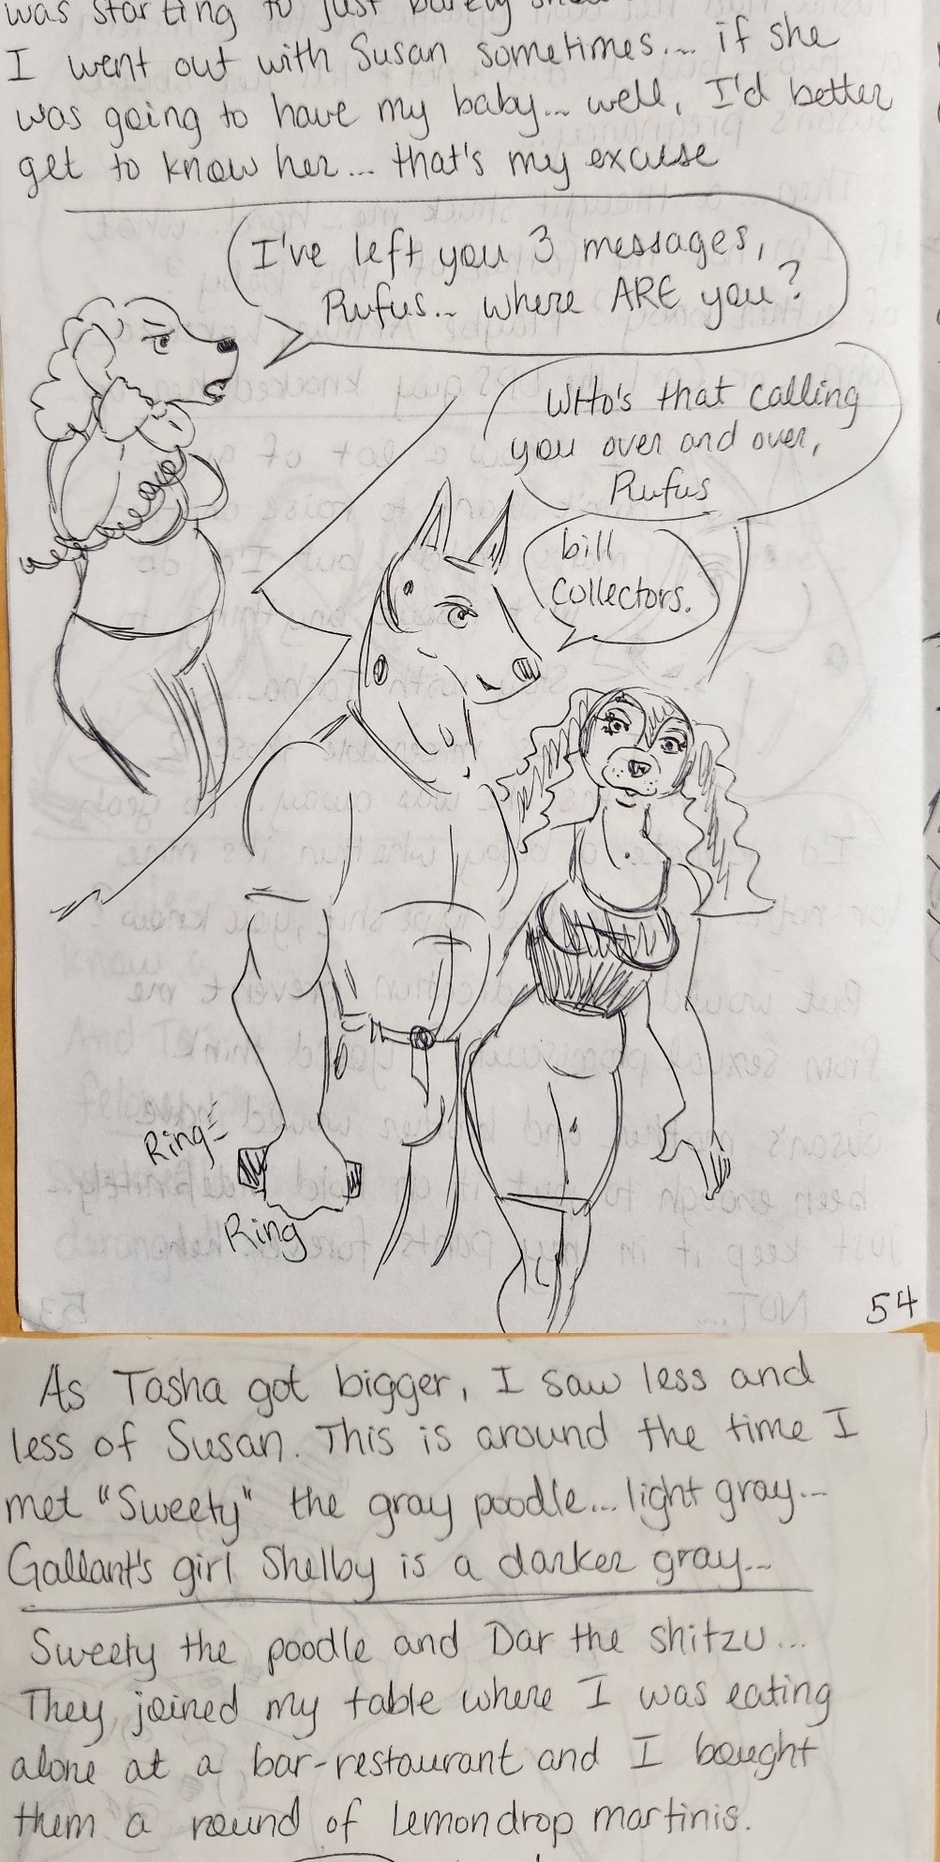 was starting to just barely
I went out with Susan sometimes... if she
was going to have my baby... well, I'd better
get to know her... that's my excuse
I've left you 3 messages,
Rufus... where ARE you?
WHo's that calling
you over and over,
Rufus
bill
collectors.
Ring
Ring
54
As Tasha got bigger, I saw less and
less of Susan. This is around the time I
met "Sweety" the gray poodle... light gray...
Gallant's girl Shelby is a darker gray...
Sweety the poodle and Dar the shitzu...
They joined my table where I was eating
alone at a bar-restaurant and I bought
them a round of lemondrop martinis.